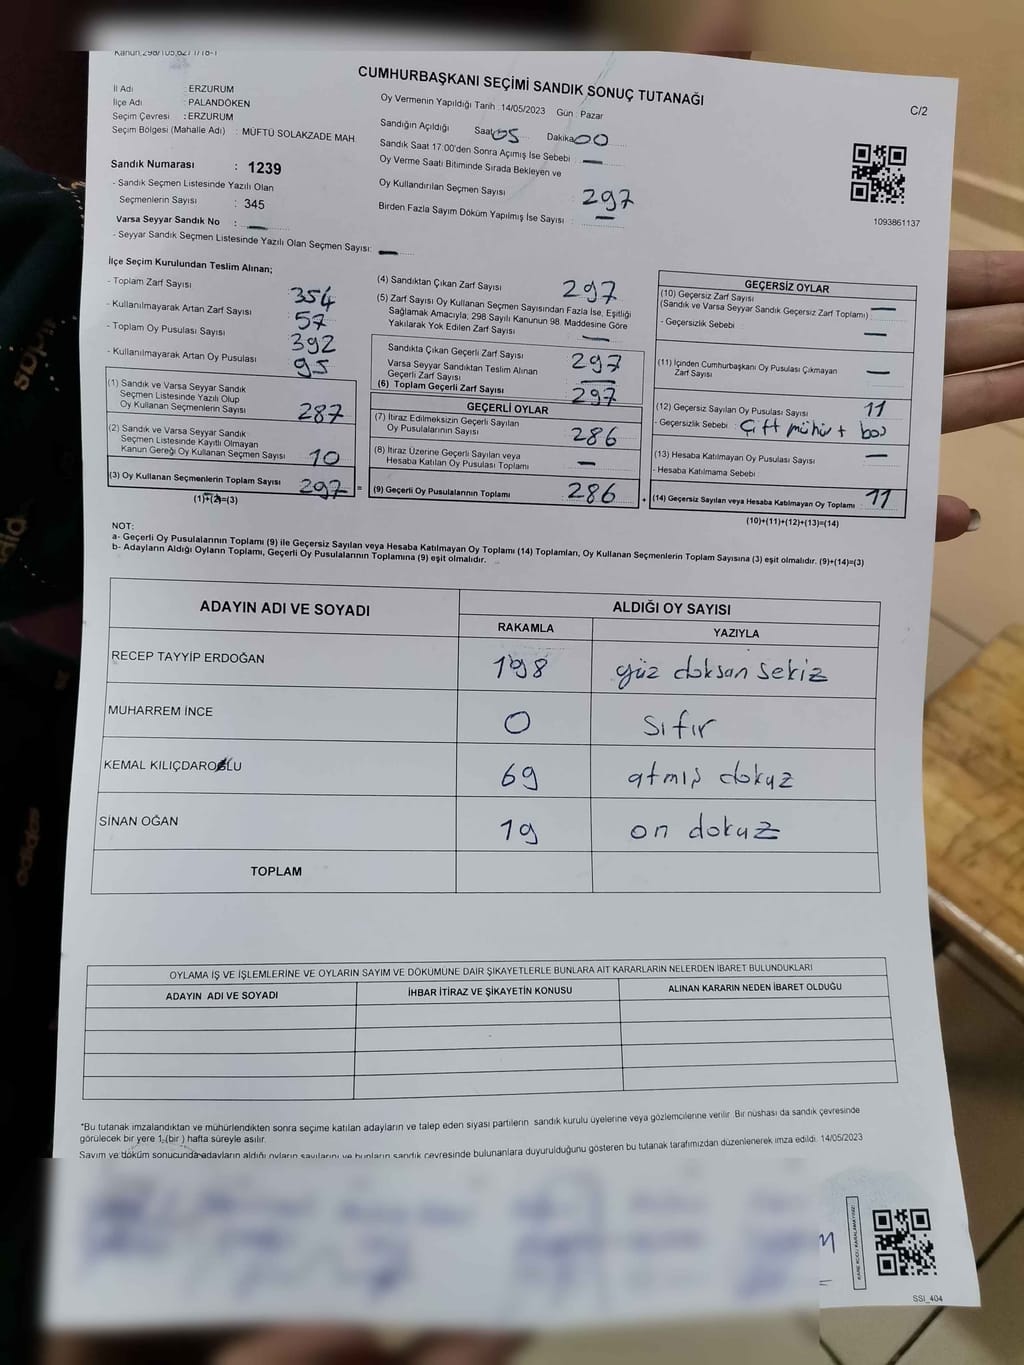 CUMHURBAŞKANI SEÇİMİ SANDIK SONUÇ TUTANAĞI
C/2
İl Adı : ERZURUM
İlçe Adı : PALANDÖKEN
Seçim Çevresi : ERZURUM
Seçim Bölgesi (Mahalle Adı) : MÜFTÜ SOLAKZADE MAH
Sandık Numarası : 1239
- Sandık Seçmen Listesinde Yazılı Olan
Seçmenlerin Sayısı : 345
Varsa Seyyar Sandık No : —
- Seyyar Sandık Seçmen Listesinde Yazılı Olan Seçmen Sayısı: —
Oy Vermenin Yapıldığı Tarih : 14/05/2023 Gün : Pazar
Sandığın Açıldığı Saat 05 Dakika 00
Sandık Saat 17:00'den Sonra Açımış İse Sebebi : —
Oy Verme Saati Bitiminde Sırada Bekleyen ve
Oy Kullandırılan Seçmen Sayısı : 297
Birden Fazla Sayım Döküm Yapılmış İse Sayısı : —
1093861137
İlçe Seçim Kurulundan Teslim Alınan;
- Toplam Zarf Sayısı 354
- Kullanılmayarak Artan Zarf Sayısı 57
- Toplam Oy Pusulası Sayısı 392
- Kullanılmayarak Artan Oy Pusulası 95
(1) Sandık ve Varsa Seyyar Sandık
Seçmen Listesinde Yazılı Olup
Oy Kullanan Seçmenlerin Sayısı 287
(2) Sandık ve Varsa Seyyar Sandık
Seçmen Listesinde Kayıtlı Olmayan
Kanun Gereği Oy Kullanan Seçmen Sayısı 10
(3) Oy Kullanan Seçmenlerin Toplam Sayısı 297
(1)+(2)=(3)
(4) Sandıktan Çıkan Zarf Sayısı 297
(5) Zarf Sayısı Oy Kullanan Seçmen Sayısından Fazla İse, Eşitliği
Sağlamak Amacıyla, 298 Sayılı Kanunun 98. Maddesine Göre
Yakılarak Yok Edilen Zarf Sayısı —
Sandıkta Çıkan Geçerli Zarf Sayısı 297
Varsa Seyyar Sandıktan Teslim Alınan
Geçerli Zarf Sayısı —
(6) Toplam Geçerli Zarf Sayısı 297
GEÇERLİ OYLAR
(7) İtiraz Edilmeksizin Geçerli Sayılan
Oy Pusulalarının Sayısı 286
(8) İtiraz Üzerine Geçerli Sayılan veya
Hesaba Katılan Oy Pusulası Toplamı —
= (9) Geçerli Oy Pusulalarının Toplamı 286
GEÇERSİZ OYLAR
(10) Geçersiz Zarf Sayısı
(Sandık ve Varsa Seyyar Sandık Geçersiz Zarf Toplamı) —
- Geçersizlik Sebebi —
(11) İçinden Cumhurbaşkanı Oy Pusulası Çıkmayan
Zarf Sayısı —
(12) Geçersiz Sayılan Oy Pusulası Sayısı 11
- Geçersizlik Sebebi : Çift mühür + boş
(13) Hesaba Katılmayan Oy Pusulası Sayısı —
- Hesaba Katılmama Sebebi
+ (14) Geçersiz Sayılan veya Hesaba Katılmayan Oy Toplamı 11
(10)+(11)+(12)+(13)=(14)
NOT:
a- Geçerli Oy Pusulalarının Toplamı (9) ile Geçersiz Sayılan veya Hesaba Katılmayan Oy Toplamı (14) Toplamları, Oy Kullanan Seçmenlerin Toplam Sayısına (3) eşit olmalıdır. (9)+(14)=(3)
b- Adayların Aldığı Oyların Toplamı, Geçerli Oy Pusulalarının Toplamına (9) eşit olmalıdır.
ADAYIN ADI VE SOYADI ALDIĞI OY SAYISI
RAKAMLA YAZIYLA
RECEP TAYYİP ERDOĞAN 198 yüz doksan sekiz
MUHARREM İNCE 0 sıfır
KEMAL KILIÇDAROĞLU 69 atmış dokuz
SİNAN OĞAN 19 on dokuz
TOPLAM
OYLAMA İŞ VE İŞLEMLERİNE VE OYLARIN SAYIM VE DÖKÜMÜNE DAİR ŞİKAYETLERLE BUNLARA AİT KARARLARIN NELERDEN İBARET BULUNDUKLARI
ADAYIN ADI VE SOYADI İHBAR İTİRAZ VE ŞİKAYETİN KONUSU ALINAN KARARIN NEDEN İBARET OLDUĞU
*Bu tutanak imzalandıktan ve mühürlendikten sonra seçime katılan adayların ve talep eden siyasi partilerin sandık kurulu üyelerine veya gözlemcilerine verilir. Bir nüshası da sandık çevresinde
görülecek bir yere 1 (bir) hafta süreyle asılır.
Sayım ve döküm sonucunda adayların aldığı oyların sayılarını ve bunların sandık çevresinde bulunanlara duyurulduğunu gösteren bu tutanak tarafımızdan düzenlenerek imza edildi. 14/05/2023
SSI_404